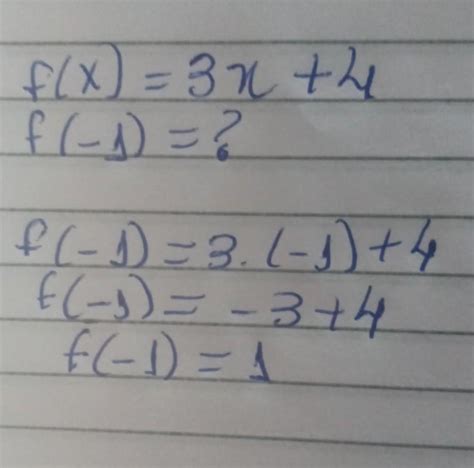 f(x) = 3x + 4
f(-1) = ?
f(-1) = 3.(-1) + 4
f(-1) = -3 + 4
f(-1) = 1